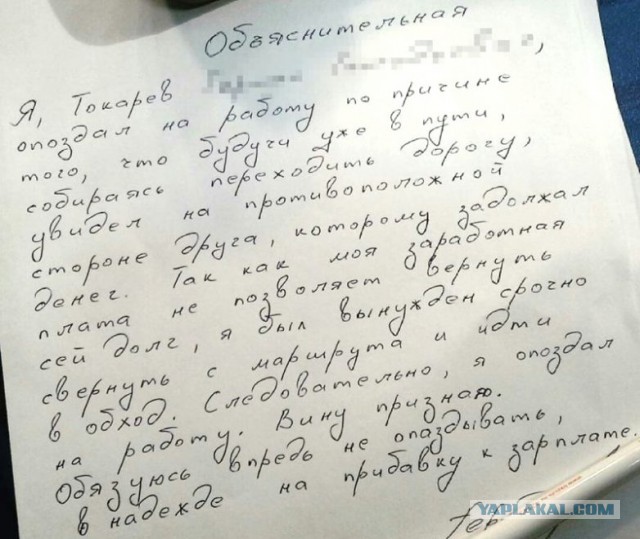 Объяснительная
Я, Токарев
опоздал на работу по причине
того, что будучи уже в пути,
собираясь переходить дорогу,
увидел на противоположной
стороне друга, которому задолжал
денег. Так как моя заработная
плата не позволяет вернуть
сей долг, я был вынужден срочно
свернуть с маршрута и идти
в обход. Следовательно, я опоздал
на работу. Вину признаю.
Обязуюсь впредь не опаздывать,
в надежде на прибавку к зарплате.
YAPLAKAL.COM